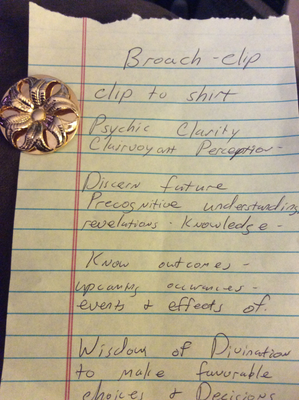 Broach-clip
clip to shirt
Psychic Clarity
Clairvoyant Perception-
Discern future
Precognitive understanding
revelations - Knowledge -
Know outcomes -
upcoming occurances -
events & effects of.
Wisdom of Divination
to make favorable
choices & Decisions